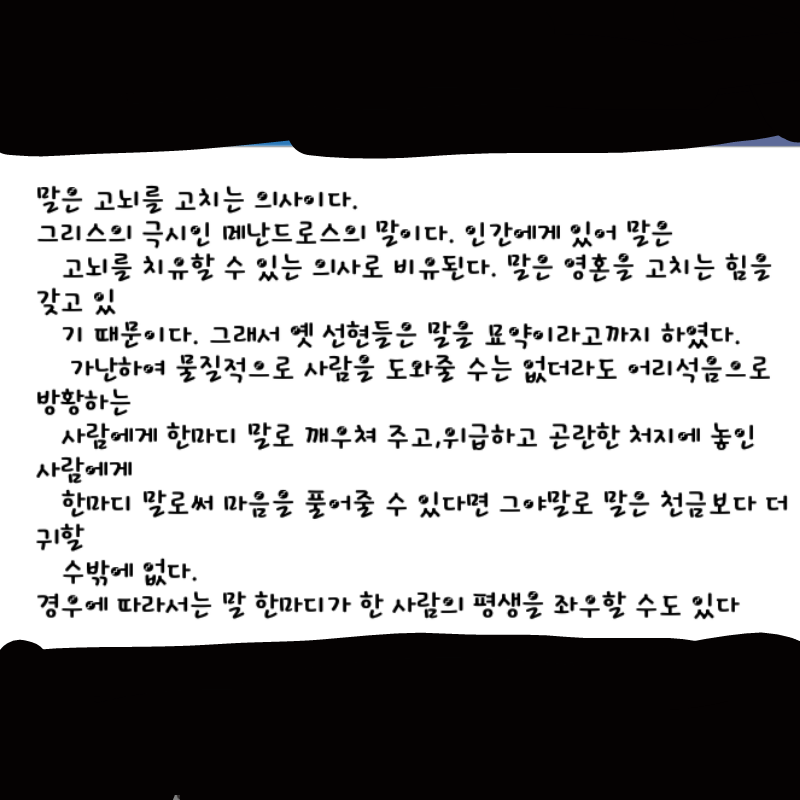 말은 고뇌를 고치는 의사이다.
그리스의 극시인 메난드로스의 말이다. 인간에게 있어 말은
고뇌를 치유할 수 있는 의사로 비유된다. 말은 영혼을 고치는 힘을
갖고 있
기 때문이다. 그래서 옛 선현들은 말을 묘약이라고까지 하였다.
가난하여 물질적으로 사람을 도와줄 수는 없더라도 어리석음으로
방황하는
사람에게 한마디 말로 깨우쳐 주고,위급하고 곤란한 처지에 놓인
사람에게
한마디 말로써 마음을 풀어줄 수 있다면 그야말로 말은 천금보다 더
귀할
수밖에 없다.
경우에 따라서는 말 한마디가 한 사람의 평생을 좌우할 수도 있다